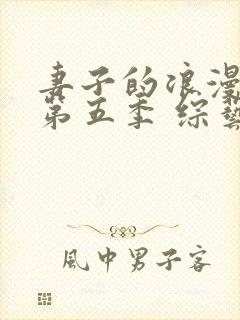 妻子的浪漫
第五季 综艺
風中男子客